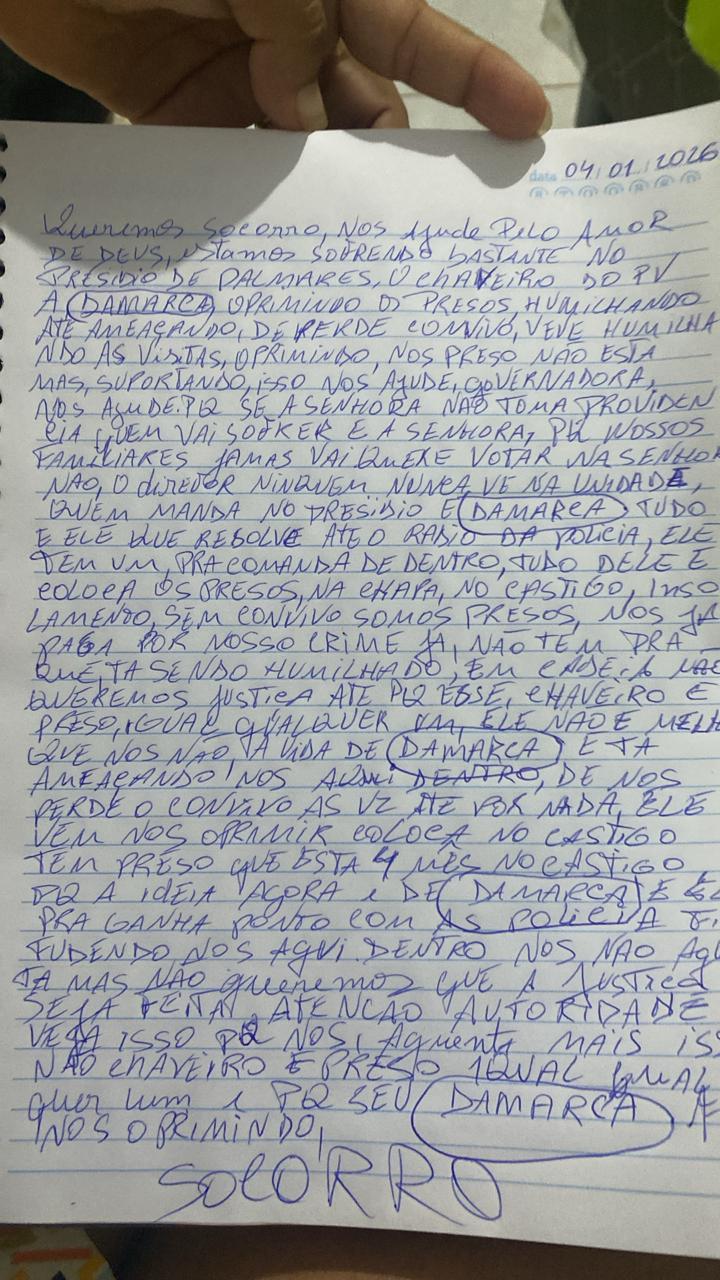 data 04/01/2026
Queremos socorro, nos ajude pelo AMOR
DE DEUS, estamos SOFRENDO bastante NO
PRESIDIO DE PALMARES, O CHAVEIRO DO PV
A DAMARCA, OPRIMINDO OS PRESOS, HUMILHANDO
ATE AMEAÇANDO, DE PERDE CONVIVO, VEVE HUMILHA
NDO AS VISITAS, OPRIMINDO, NOS PRESO NÃO ESTA
MAS, SUPORTANDO, isso NOS AJUDE, GOVERNADORA,
NOS AJUDE. PQ SE A SENHORA NÃO TOMA PROVIDEN
CIA QUEM VAI SOFRER E A SENHORA, PQ NOSSOS
FAMILIARES JAMAS VAI QUERE VOTAR NA SENHOR
NÃO, O diretor NINQUEM NUNCA VE NA UNIDADE,
QUEM MANDA NO PRESIDIO E DAMARCA TUDO
E ELE QUE RESOLVE ATE O RADIO DA POLICIA, ELE
TEM UM, PRA COMANDA DE DENTRO, TUDO DELE E
COLOCA OS PRESOS, NA CHAPA, NO CASTIGO, INSO
LAMENTO, SEM CONVIVO SOMOS PRESOS, NOS JA
PAGA POR NOSSO CRIME JA, NÃO TEM PRA
QUE, TA SENDO HUMILHADO, EM CADEIA NÃO
QUEREMOS JUSTICA ATE PQ ESSE, CHAVEIRO E
PRESO, IGUAL QUALQUER UM, ELE NÃO E MELH
QUE NOS NÃO, A VIDA DE DAMARCA E TA
AMEAÇANDO NOS AQUI DENTRO, DE NOS
PERDE O CONVIVO AS VZ ATE POR NADA, ELE
VEM NOS OPRIMIR COLOCA NO CASTIGO
TEM PRESO QUE ESTA 4 MÊS NO CASTIGO
PQ A IDEIA AGORA E DE DAMARCA E EL
PRA GANHA PONTO COM AS POLICIA
FUDENDO NOS AQUI DENTRO NOS NÃO AGU
TA MAS NÃO queremos QUE A JUSTICA
SEJA FEITA, ATENCAO AUTORIDADE
VEJA ISSO PQ NOS, Aguenta MAIS ISS
NÃO CHAVEIRO E PRESO IGUAL QUAL
quer um e PQ SEU DAMARCA
NOS OPRIMINDO,
SOCORRO